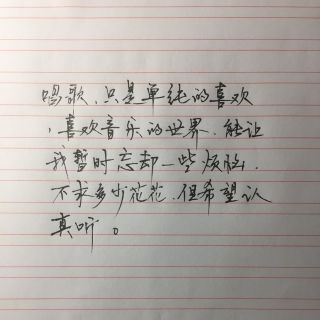 唱歌，只是单纯的喜欢
，喜欢音乐的世界，能让
我暂时忘却一些烦恼，
不求多少花花，但希望认
真听。